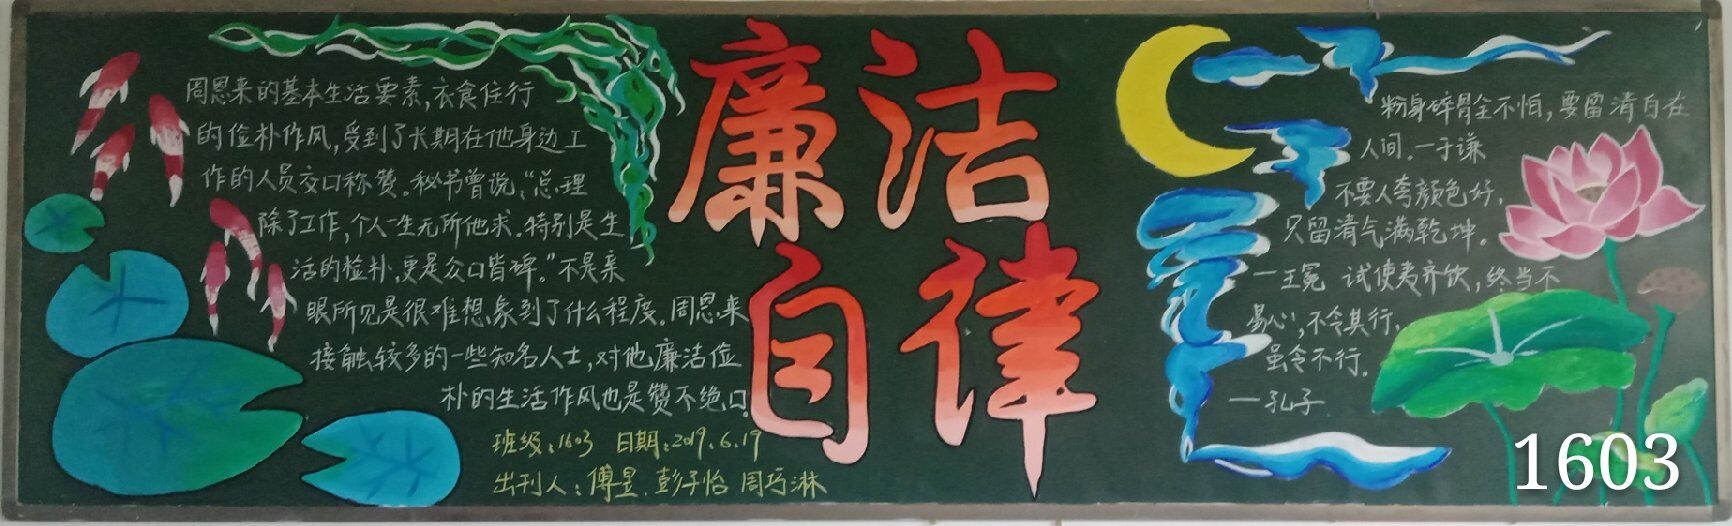 廉洁
自律
周恩来的基本生活要素,衣食住行
的俭朴作风,受到了长期在他身边工
作的人员交口称赞。秘书曾说,“总理
除了工作,个人一生无所他求。特别是生
活的检朴,更是众口皆碑。”不是亲
眼所见是很难想象到了什么程度。周恩来
接触较多的一些知名人士,对他廉洁俭
朴的生活作风也是赞不绝口。
班级:1603 日期:2019.6.19
出刊人:傅昱.彭子怡 周巧淋
粉身碎骨全不怕,要留清白在
人间.一于谦
不要人夸颜色好,
只留清气满乾坤。
一王冕 试使夷齐饮,终当不
易心,不令其行,
虽令不行.
一孔子
1603